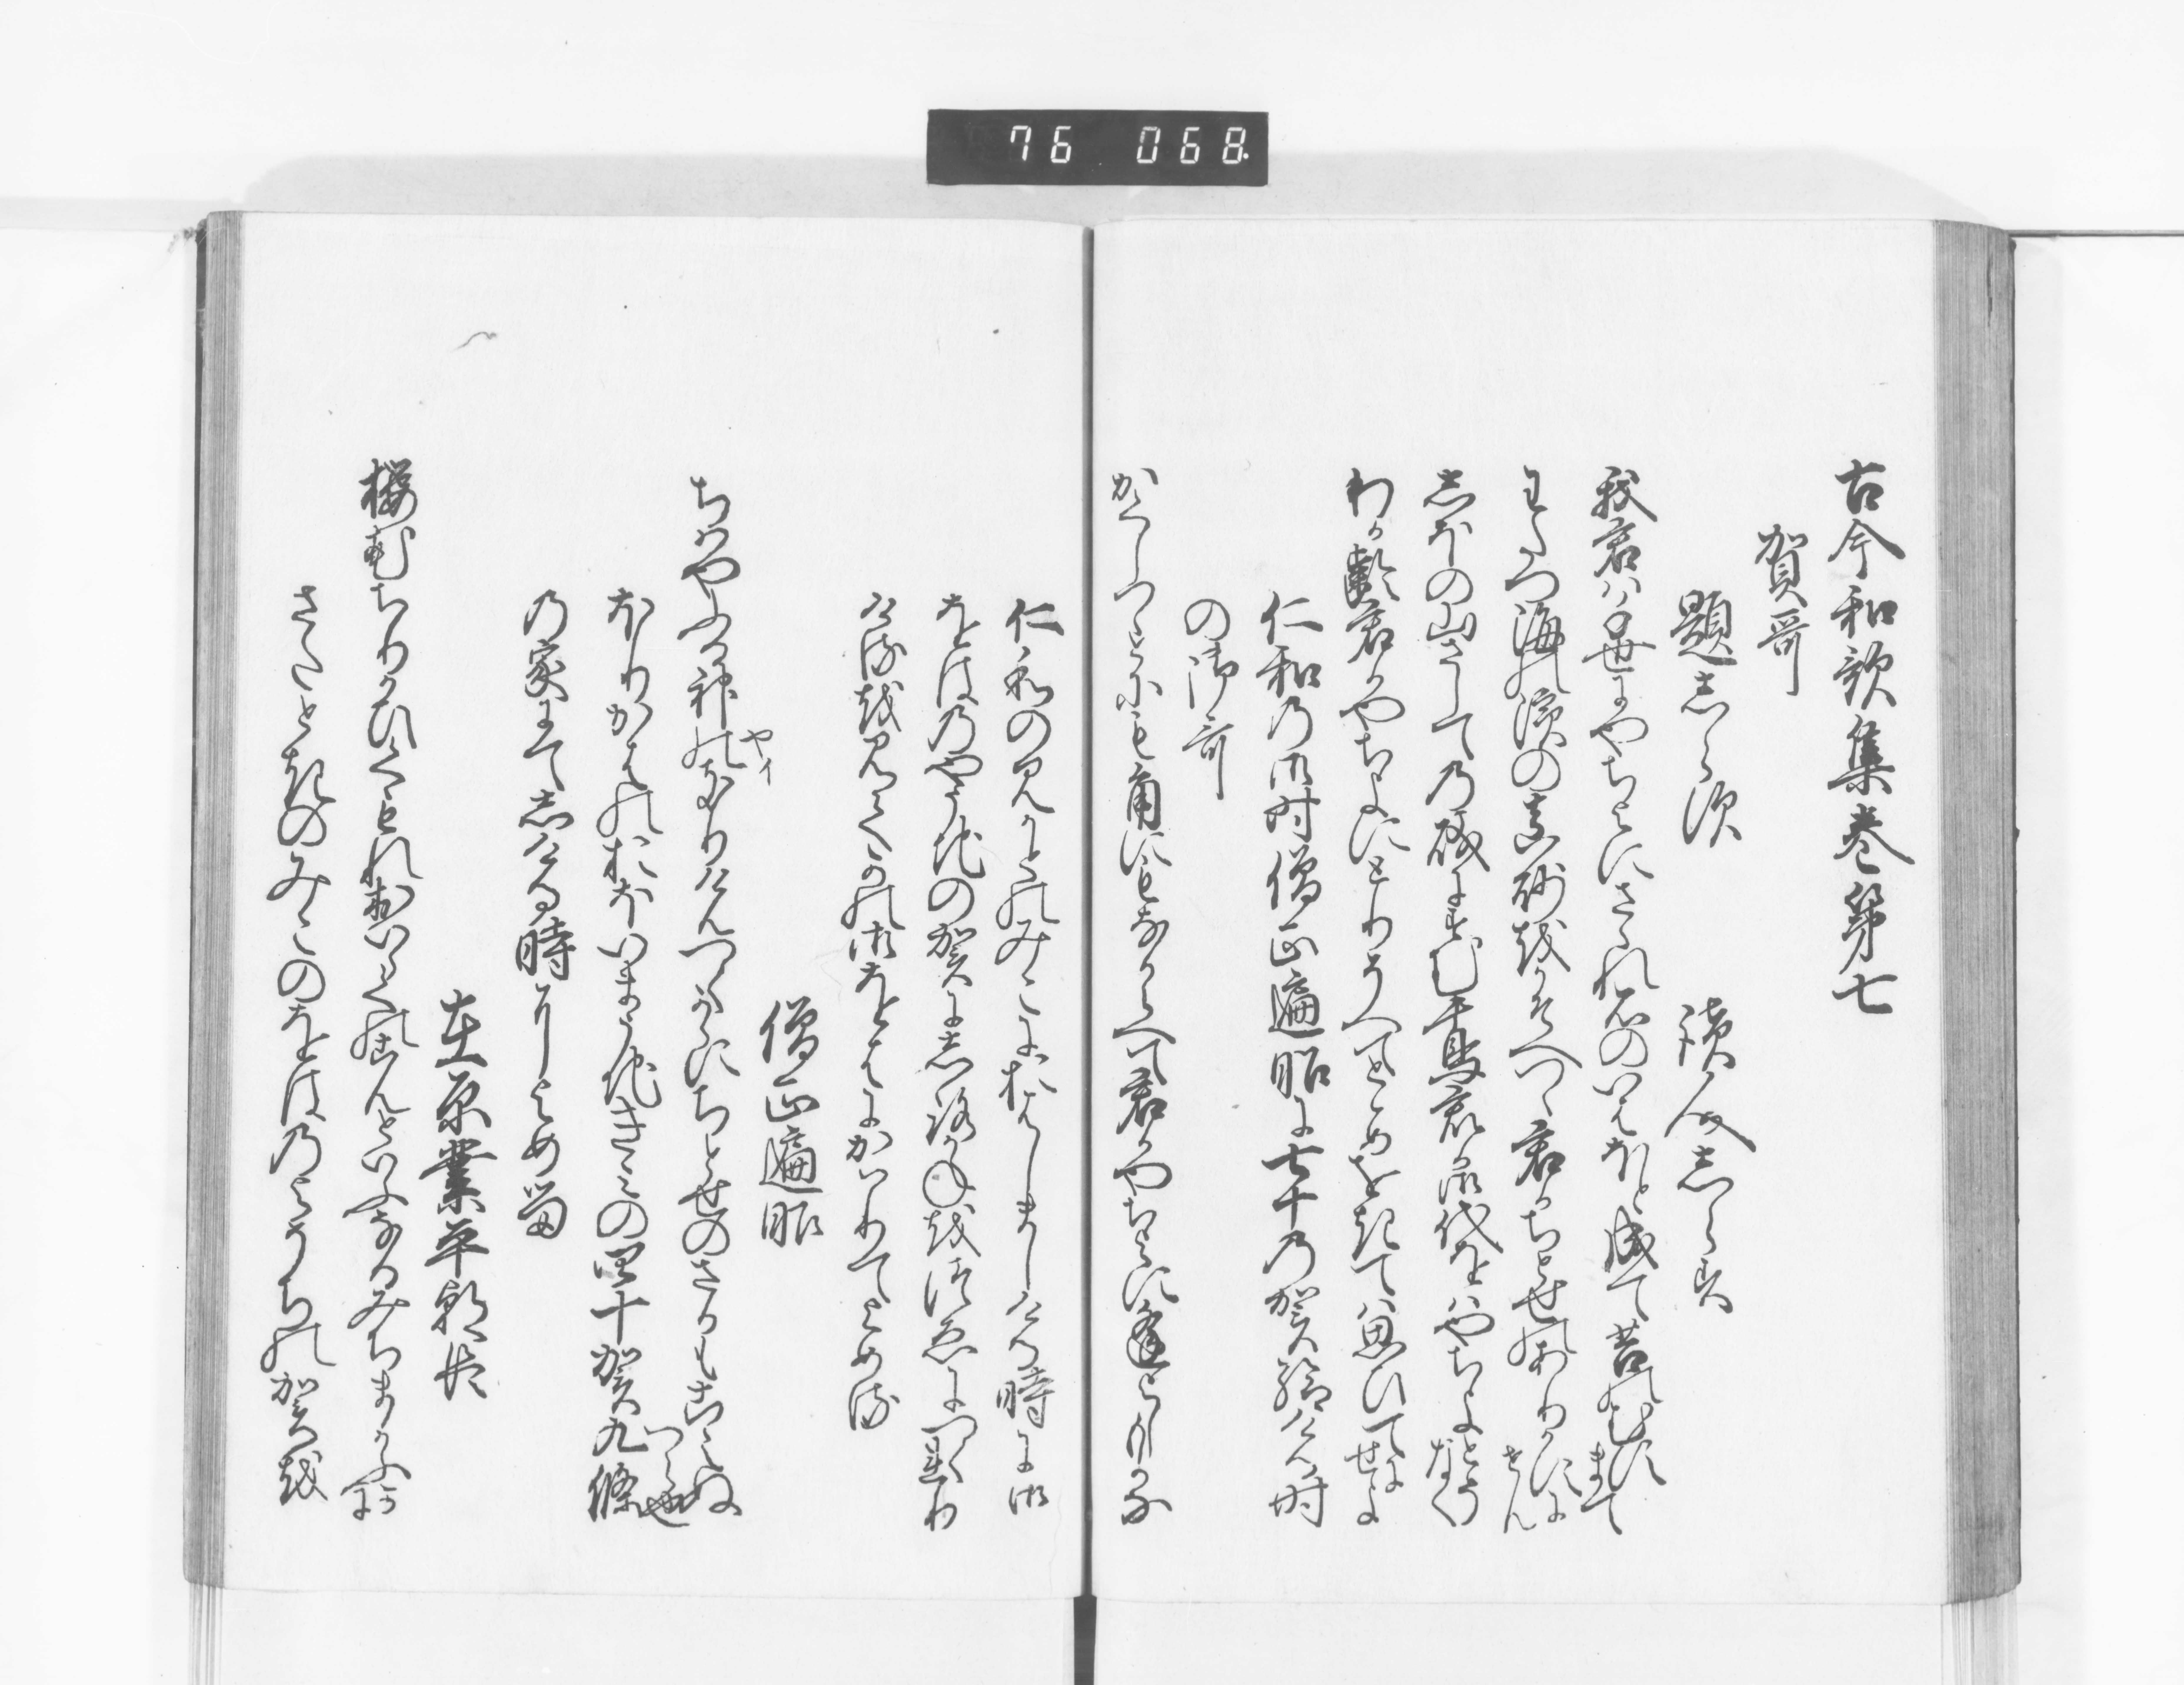 76 068.
古今和歌集巻第七
賀哥
題しらす　読人しらす
我君は千世にやちよにさゝれ石のいはほと成て苔のむすまて
わたつ海の濱の真砂をかそへつゝ君かちとせのありかすにせん
しほの山さしての磯にすむ千鳥君か御代をはやちよとそなく
わか齢君かやちよにとりそへてとゝめをきては思ひいてにせよ
仁和の御時僧正遍昭に七十の賀給ける時
の御哥
かくしつゝとにもかくにもなからへて君かやちよに逢よしもかな
仁和のみかとのみこにおはしましける時に御
をはのやそちの賀にしろかねを杖につくれり
けるを見てかの御をはにかはりてよめる
僧正遍昭
ちはやふる神のきりけんつくからにちとせのさかもこえぬ
へら也
やイ
ほりかはのおほいまうちきみの四十賀九條
の家にてしける時によめる
在原業平朝臣
桜花ちりかひくもれおいらくのこんといふなるみちまかふかに
さたときのみこのをはのよそちの賀を